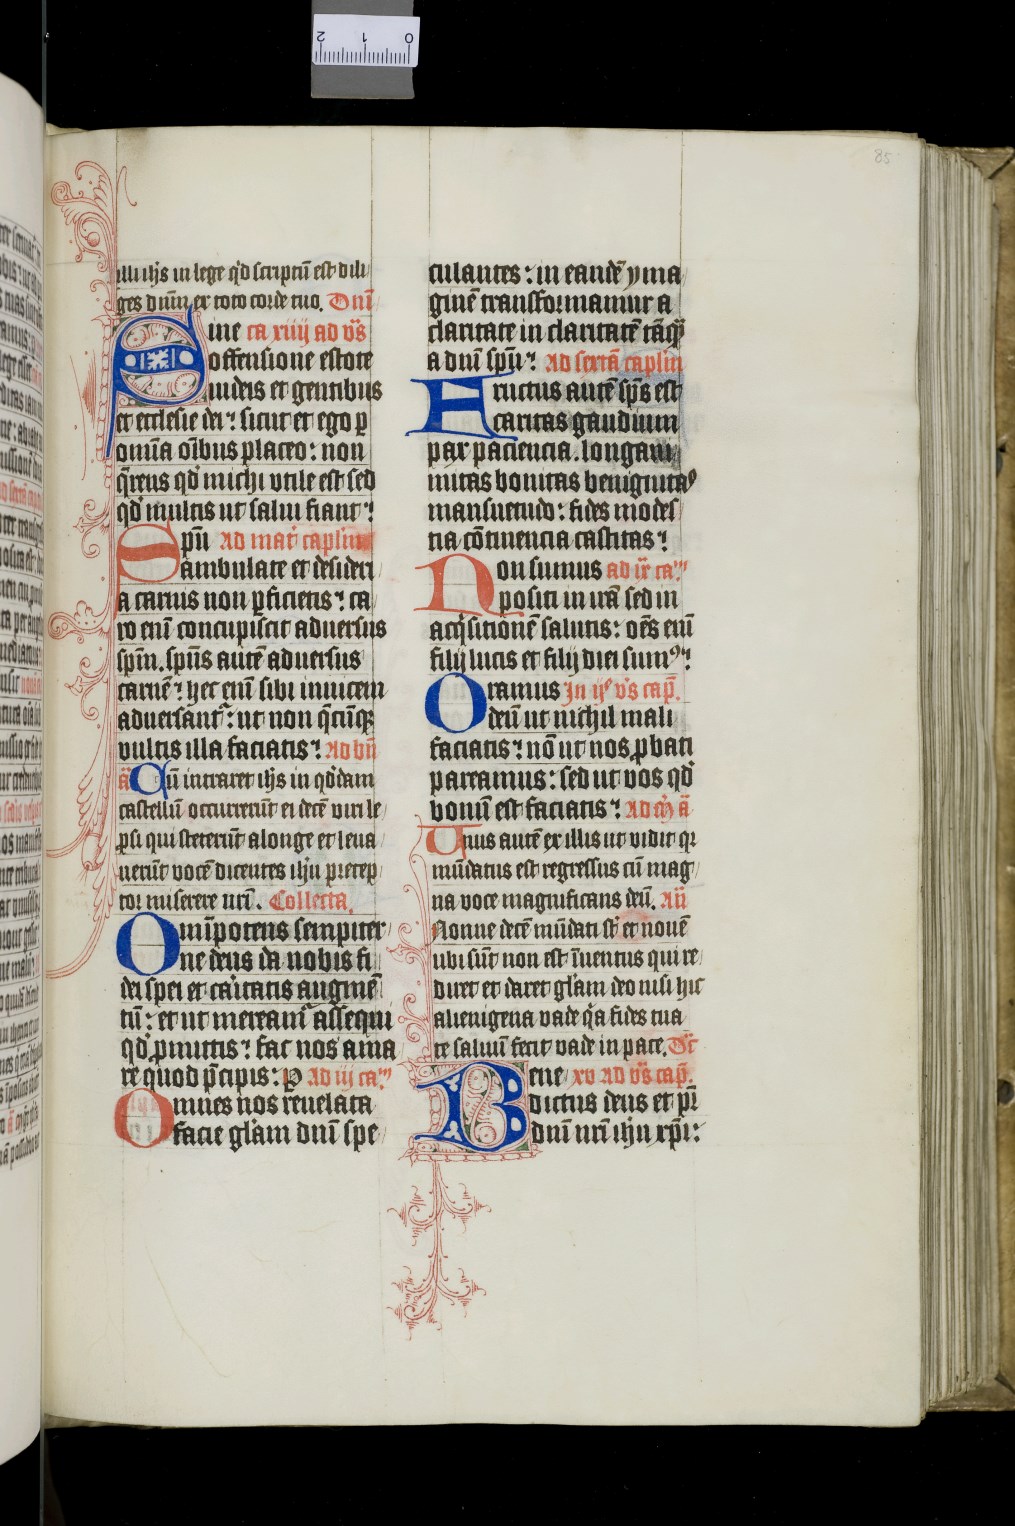 illi ihs in lege qd scriptū est dili
ges dnm̄ ex toto corde tuo. Dnī
Sine ca xiiij ad vs̄
offensione estote
iudeis et gentibus
et ecclesie dei: sicut et ego p
omīa oībus placeo: non
q̄rens qd michi vtile est sed
qd multis ut salui fiant:
Spū Ad mat caplm̄
ambulate et desideri
a carnis non pficietis: ca
ro enī concupiscit aduersus
spm̄. spūs autē aduersus
carnē: hec enī sibi inuicem
aduersant̄: ut non q̄cūq;
vultis illa faciatis: Ad bn̄
ā Cū intraret ihs in qdam
castellū occurrerūt ei decē viri le
psi qui steterūt alonge et leua
uerūt vocē dicentes ihu precep
tor miserere nrī. Collecta.
Omīpotens sempiter
ne deus da nobis fi
dei spei et caritatis augmē
tū: et ut mereamr̄ assequi
qd pmittis: fac nos ama
re quod p̄cipis: P Ad iij ca
Omnes nos reuelata
facie glam dnī spe
culantes: in eandē yma
ginē transformamur a
claritate in claritatē tāq̄
a dnī spū: Ad sextā caplm̄
Fructus autē sps̄ est
caritas gaudium
pax paciencia. longani
mitas bonitas benignitas
mansuetudo: fides modes
tia cōtinencia castitas:
Non sumus ad ix ca
positi in irā sed in
acq̄sitionē salutis: oēs enī
filij lucis et filij diei sumꝰ:
Oramus In ijs vs̄ cap̄.
deū ut nichil mali
faciatis: nō ut nos pbati
pareamus: sed ut vos qd
bonū est faciatis: Ad m̄ ā
Unus autē ex illis ut vidit qr
mūdatus est regressus cū mag
na voce magnificans deū. Añ
Nonne decē mūdati st̄ et nouē
ubi sūt non est īuentus qui re
diret et daret glam deo nisi hic
alienigena vade q̄a fides tua
te saluū fecit vade in pace. Dn̄c
Bene xv Ad vs̄ cap̄.
dictus deus et pr̄
dnī nrī ihu xpi:
85
2 1 0